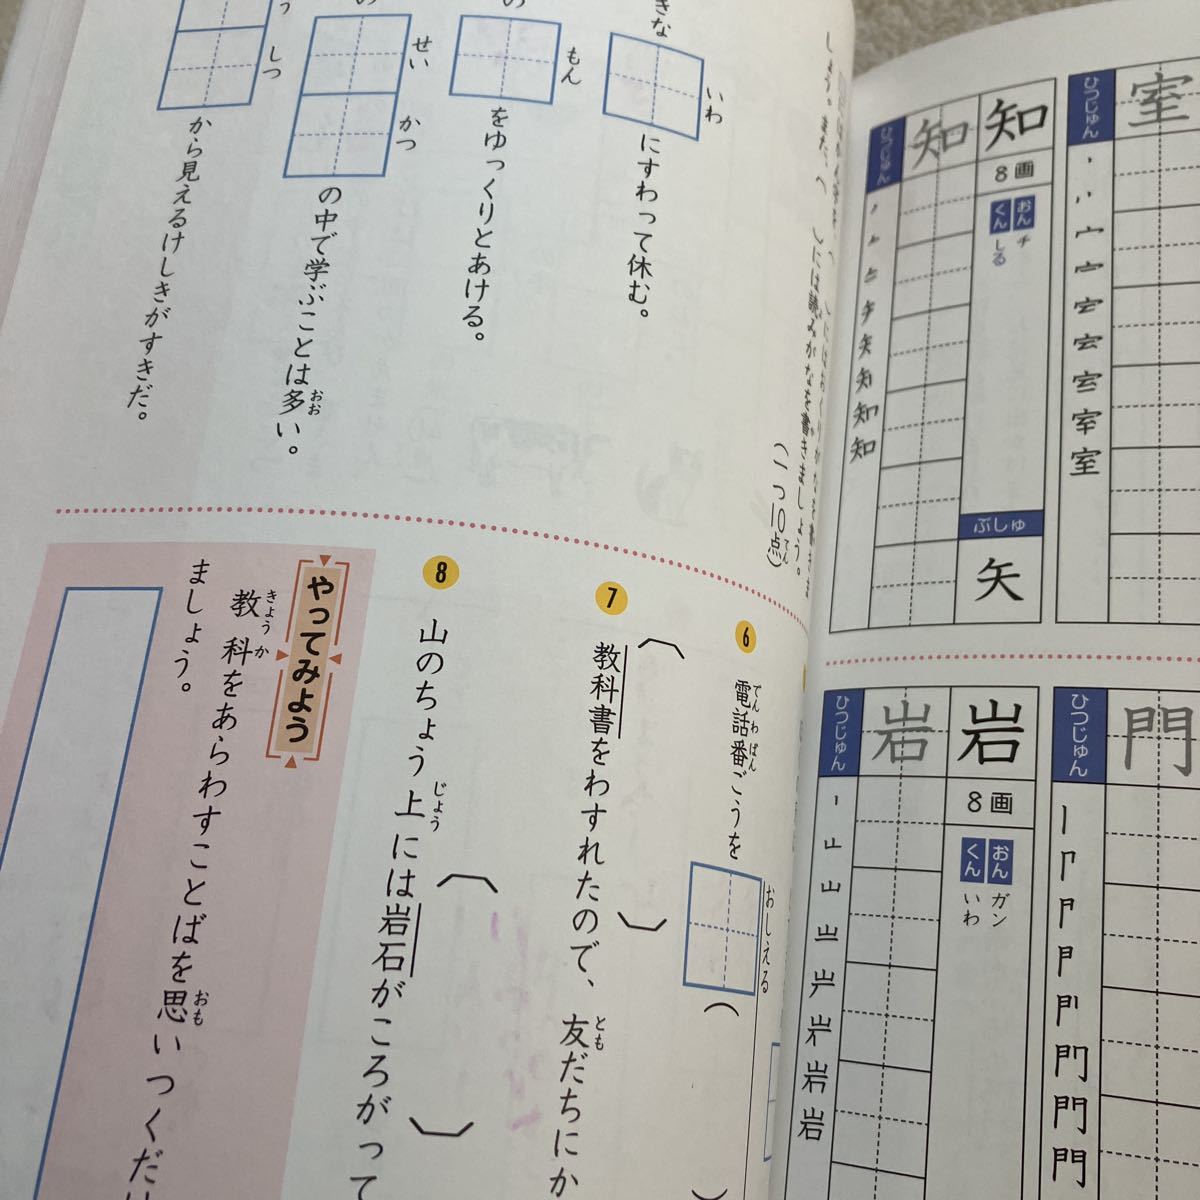 ひつじゅん
室
知
知
8画
おん
チ
くん
しる
ぶしゅ
矢
ひつじゅん
門
ひつじゅん
岩
岩
8画
おん
ガン
くん
いわ
ひつじゅん
)には読みがなを書きましょう。
(一つ10点)
てん
きな
いわ
にすわって休む。
の
もん
をゆっくりとあける。
せい
かつ
の中で学ぶことは多い。
おお
しつ
から見えるけしきがすきだ。
6
電話番ごうを
でんわばん
おしえる
7
教科書をわすれたので、友だちにか
とも
8
山のちょう上には岩石がころがって
じょう
やってみよう
教科をあらわすことばを思いつくだけ
きょうか
おも
ましょう。